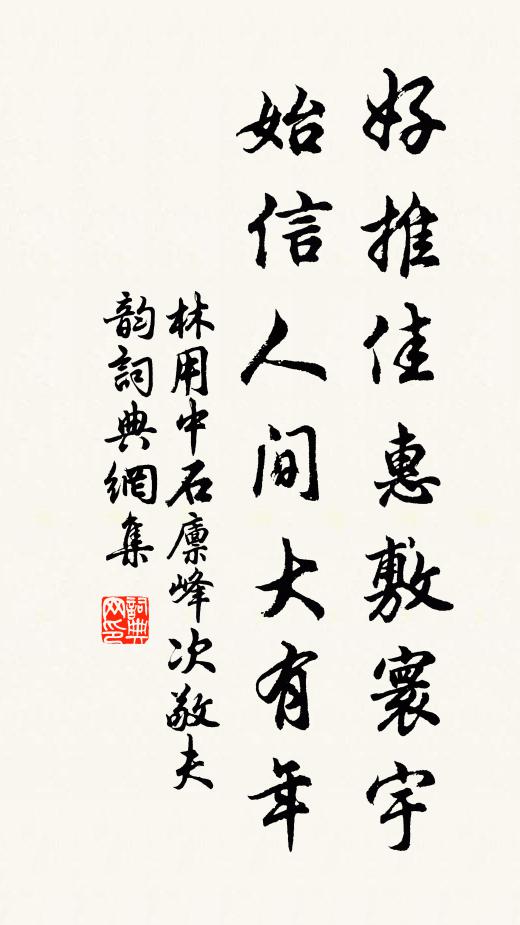 好推佳惠敷寰宇
始信人間大有年
林用中石廩峰次敬夫
韵詞典網集
詞典
网印